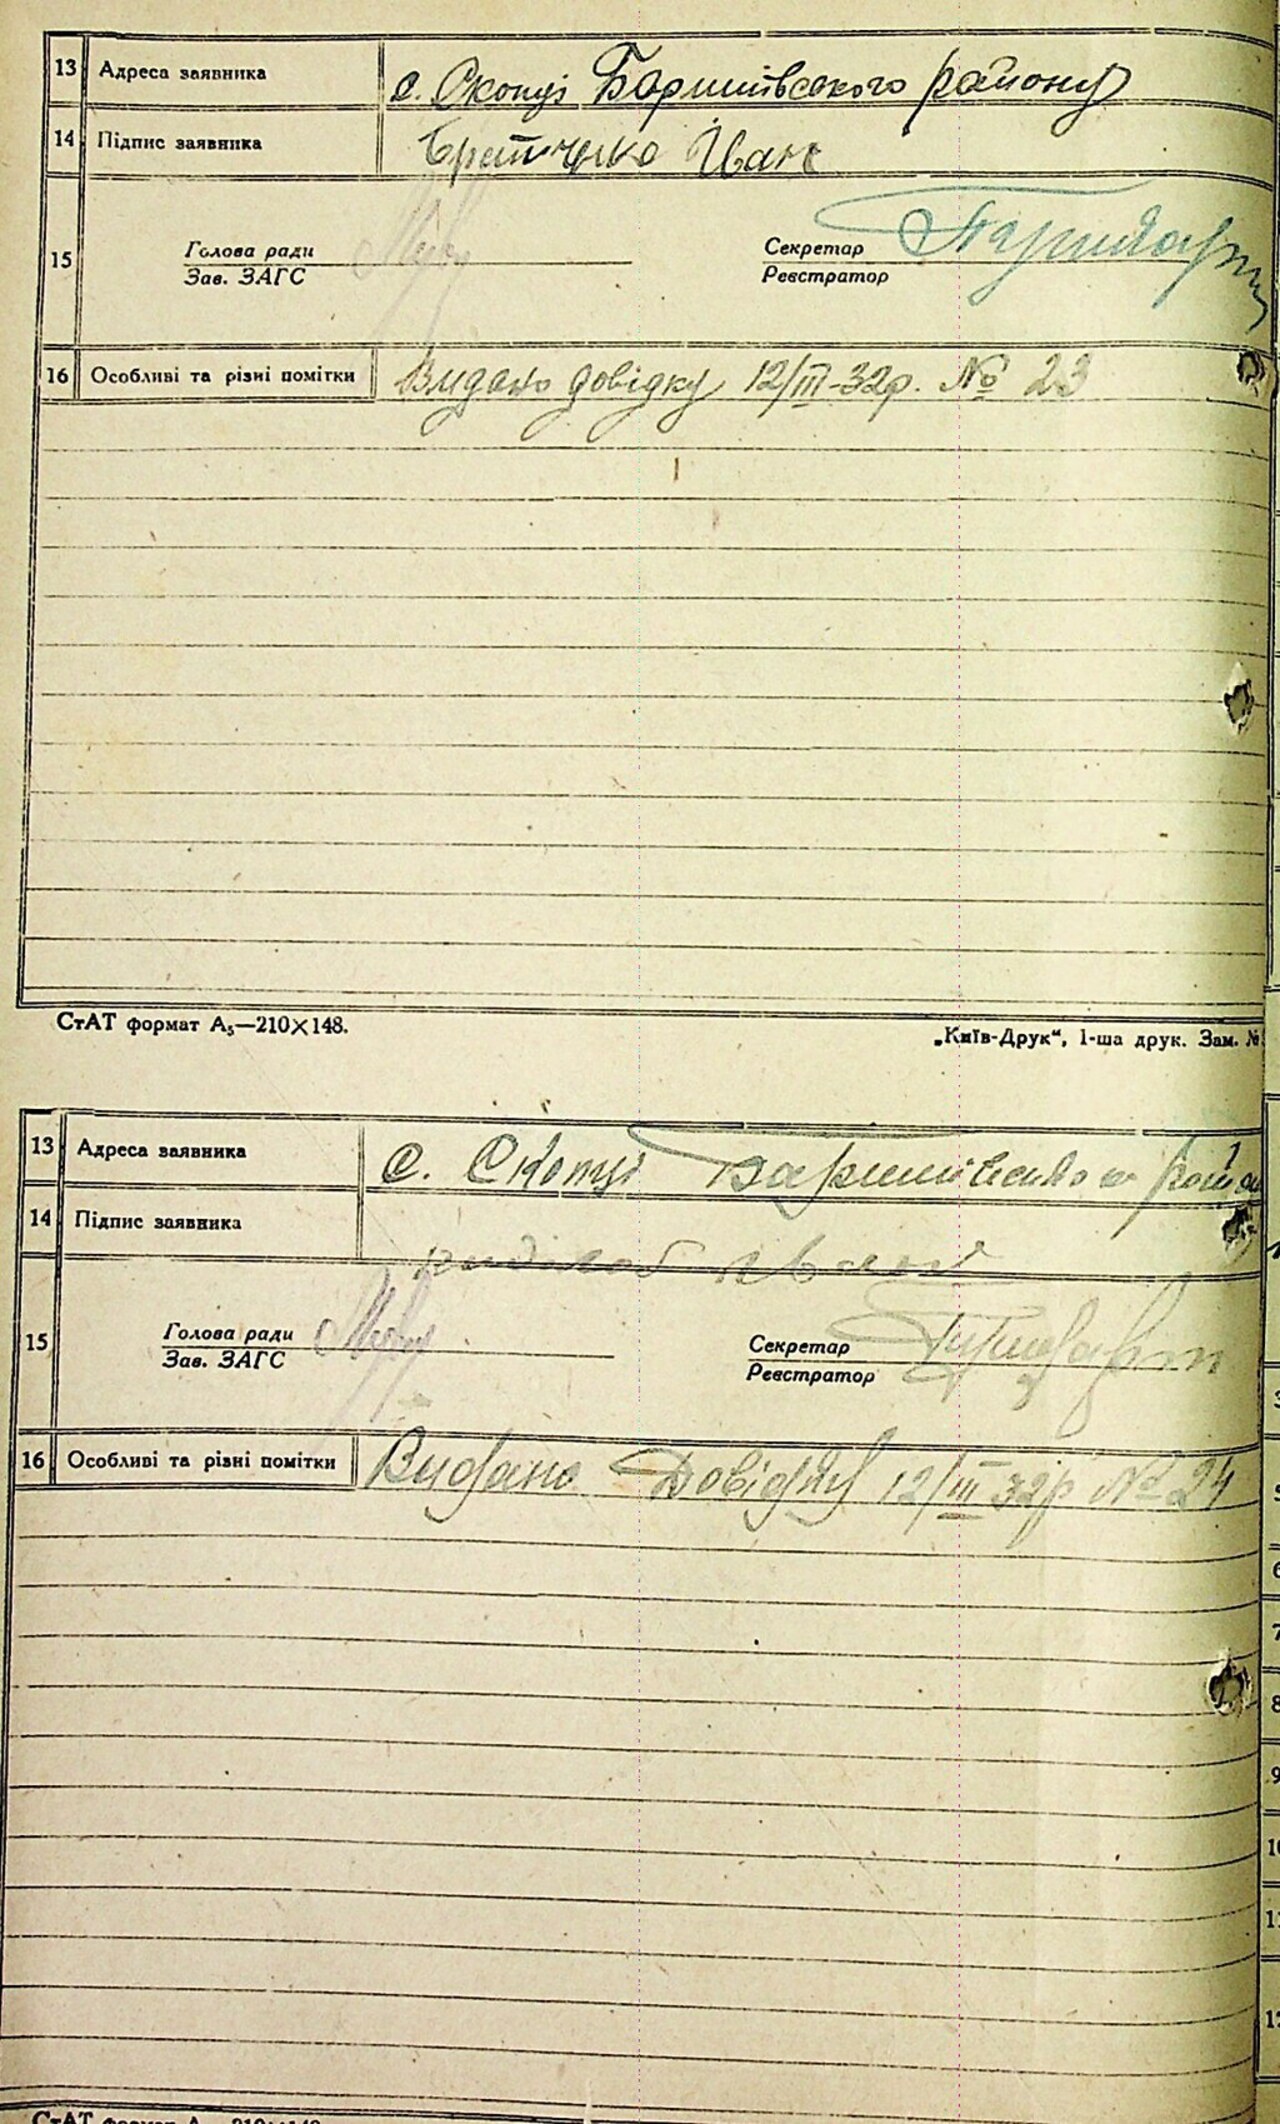 13 Адреса заявника с. Скопці Баришівського району
14 Підпис заявника Іван
15 Голова ради
Зав. ЗАГС
Секретар
Реєстратор
16 Особливі та різні помітки Видано довідку 12/III-32р. № 23
СтАТ формат А₅—210×148.
„Київ-Друк“, 1-ша друк. Зам. №
13 Адреса заявника с. Скопці Баришівського
14 Підпис заявника
15 Голова ради
Зав. ЗАГС
Секретар
Реєстратор
16 Особливі та різні помітки Видано Довідку 12/III 32р № 24
СтАТ формат А